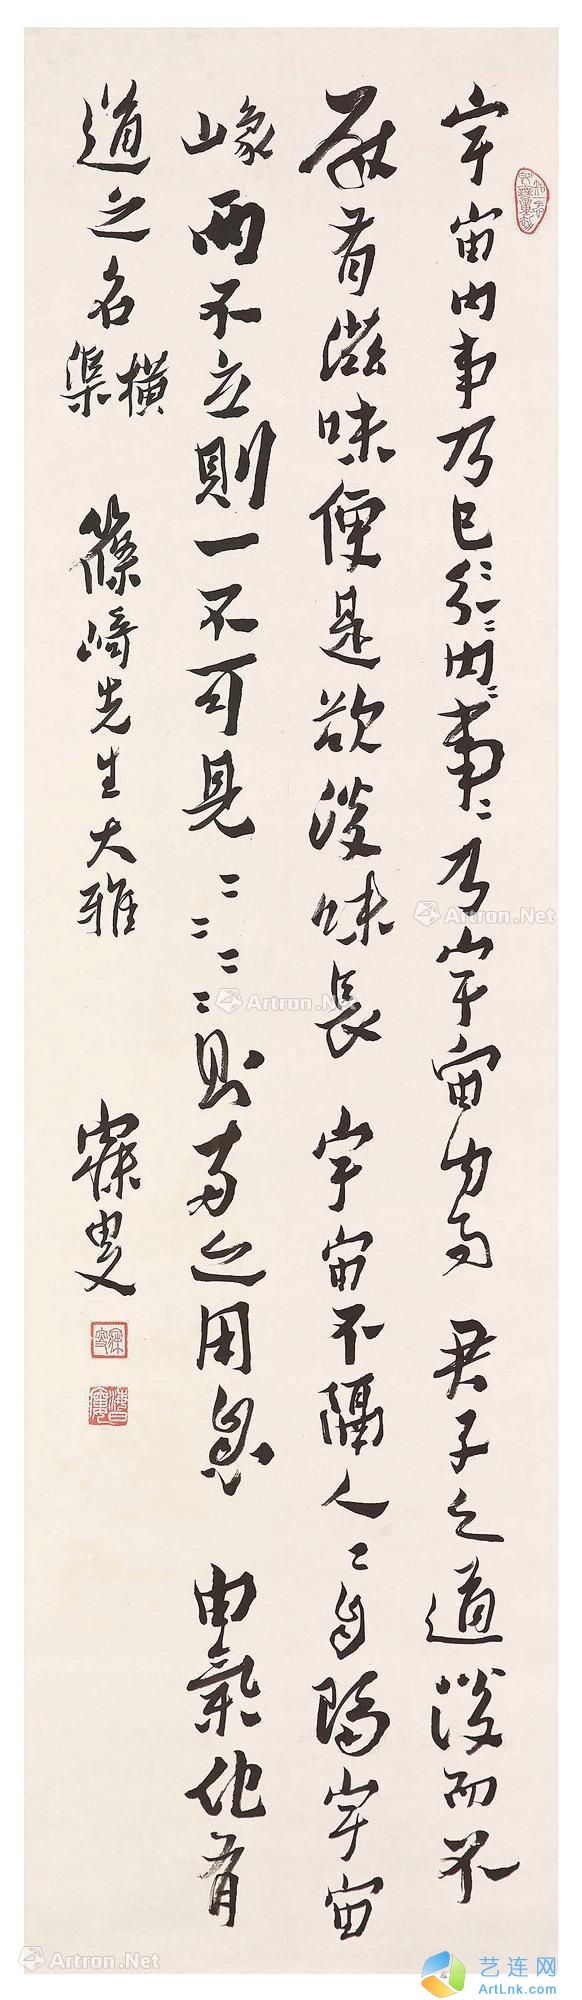 宇宙内事乃己〻分〻内〻事〻乃宇宙内事 君子之道淡而不
厭有滋味便是欲淡味長 宇宙不隔人〻自隔宇宙
象山 兩不立則一不可見〻〻〻〻則兩之用息 由氣化有
道之名 橫渠 篠崎先生大雅 寐叟
海日廔
Artron.Net
Artron.Net
Artron.Net
艺连网
ArtLnk.com